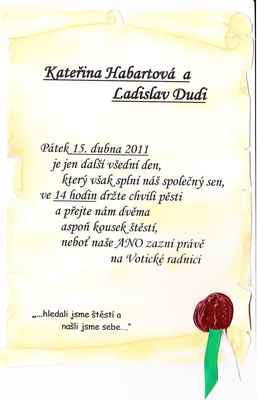 Kateřina Habartová a
Ladislav Dudi
Pátek 15. dubna 2011
je jen další všední den,
který však splní náš společný sen,
ve 14 hodin držte chvíli pěsti
a přejte nám dvěma
aspoň kousek štěstí,
neboť naše ANO zazní právě
na Votické radnici
„...hledali jsme štěstí a
našli jsme sebe..."